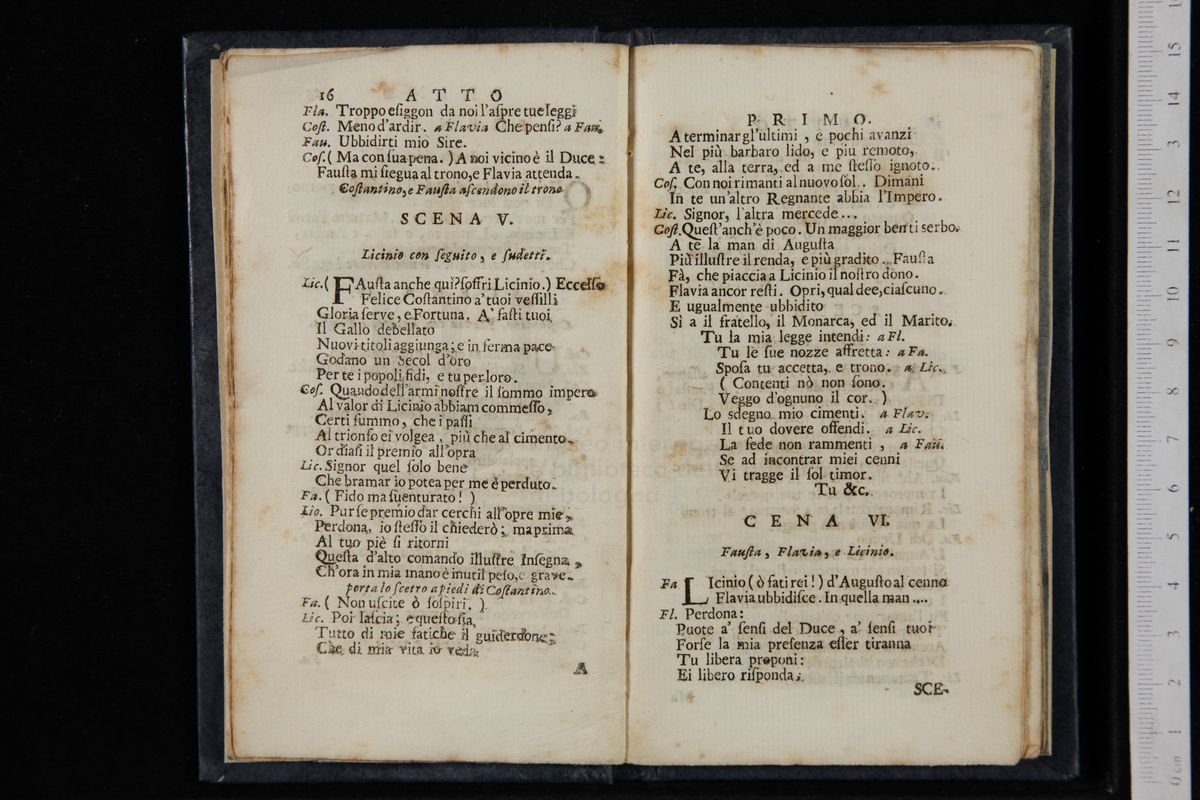 16 ATTO
Fla. Troppo eſiggon da noi l'aſpre tue leggi
Coſt. Meno d'ardir. a Flavia Che penſi? a Fau.
Fau. Ubbidirti mio Sire.
Coſ. ( Ma con ſua pena. ) A noi vicino è il Duce:
Fauſta mi ſiegua al trono, e Flavia attenda.
Coſtantino, e Fauſta aſcendono il trono
SCENA V.
Licinio con ſeguito, e ſudetti.
Lic. ( FAuſta anche qui? ſoffri Licinio.) Eccelſo
Felice Coſtantino a' tuoi veſſilli
Gloria ſerve, e Fortuna. A' faſti tuoi
Il Gallo debellato
Nuovi titoli aggiunga; e in ferma pace
Godano un Secol d'oro
Per te i popoli fidi, e tu per loro.
Coſ. Quando dell'armi noſtre il ſommo impero
Al valor di Licinio abbiam commeſſo,
Certi fummo, che i paſſi
Al trionfo ei volgea, più che al cimento.
Or diaſi il premio all'opra
Lic. Signor quel ſolo bene
Che bramar io potea per me è perduto.
Fa. ( Fido ma ſuenturato! )
Lio. Pur ſe premio dar cerchi all'opre mie,
Perdona, io ſteſſo il chiederò; ma prima
Al tuo piè ſi ritorni
Queſta d'alto comando illuſtre Inſegna,
Ch'ora in mia mano è inutil peſo, e grave.
porta lo ſcetro a piedi di Coſtantino.
Fa. ( Non uſcite ò ſoſpiri. )
Lic. Poi laſcia; e queſto ſia
Tutto di mie fatiche il guiderdone;
Che di mia vita io veda
A
PRIMO.
A terminar gl'ultimi, e pochi avanzi
Nel più barbaro lido, e piu remoto,
A te, alla terra, ed a me ſteſſo ignoto.
Coſ. Con noi rimanti al nuovo ſol. Dimani
In te un'altro Regnante abbia l'Impero.
Lic. Signor, l'altra mercede...
Coſt. Queſt'anch'è poco. Un maggior ben ti serbo.
A te la man di Auguſta
Più illuſtre il renda, e più gradito. Fauſta
Fà, che piaccia a Licinio il noſtro dono.
Flavia ancor reſti. Opri, qual dee, ciaſcuno.
E ugualmente ubbidito
Sì a il fratello, il Monarca, ed il Marito.
Tu la mia legge intendi: a Fl.
Tu le ſue nozze affretta: a Fa.
Spoſa tu accetta, e trono. a Lic.
( Contenti nò non ſono.
Veggo d'ognuno il cor. )
Lo sdegno mio cimenti. a Flav.
Il tuo dovere offendi. a Lic.
La fede non rammenti, a Fau.
Se ad incontrar miei cenni
Vi tragge il ſol timor.
Tu &c.
CENA VI.
Fauſta, Flavia, e Licinio.
Fa LIcinio ( ò fati rei! ) d'Auguſto al cenno
Flavia ubbidiſce. In quella man ....
Fl. Perdona:
Puote a' ſenſi del Duce, a' ſenſi tuoi
Forſe la mia preſenza eſſer tiranna
Tu libera proponi:
Ei libero riſponda.
SCE-